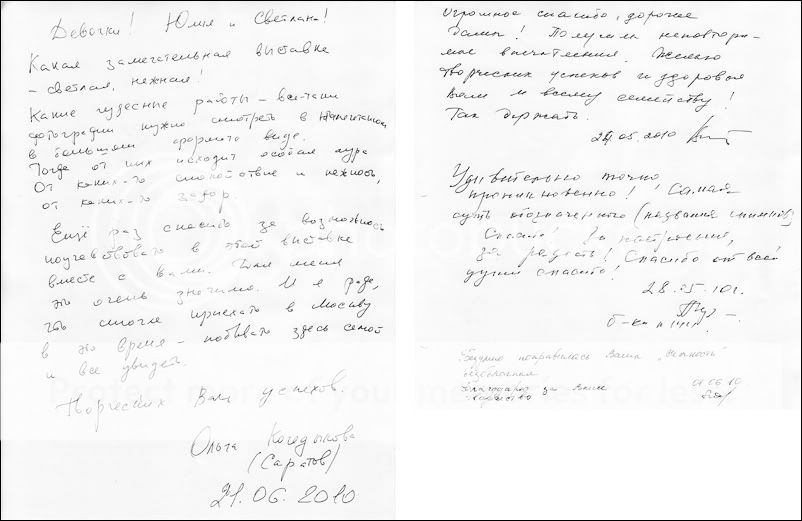 Девочки! Юлия и Светлана!
Какая замечательная выставка
– светлая, нежная!
Какие чудесные работы – все-таки
фотографии нужно смотреть в напечатанном
в большом формате виде.
Тогда от них исходит особая аура
От каких-то спокойствие и нежность,
от каких-то задор.
Ещё раз спасибо за возможность
поучаствовать в этой выставке
вместе с вами. Для меня
это очень значимо. И я рада,
что смогла приехать в Москву
в это время – побывать здесь самой
и все увидеть.
Творческих Вам успехов.
Ольга
(Саратов)
21.06.2010
Огромное спасибо, дорогие
дамы! Получила неповтори-
мое впечатление. Желаю
творческих успехов и здоровья
Вам и всему семейству!
Так держать.
05.2010
Удивительно точно
проникновенно! Самая
суть обозначенного (названия снимков)
Спасибо! За настроение,
за радость! Спасибо от всей
души спасибо!
28.05.10г.
б-ка
понравилась Ваша "Нежность"
Благодарю за Ваше
творчество
01.06.10
Protect more of your memories for less